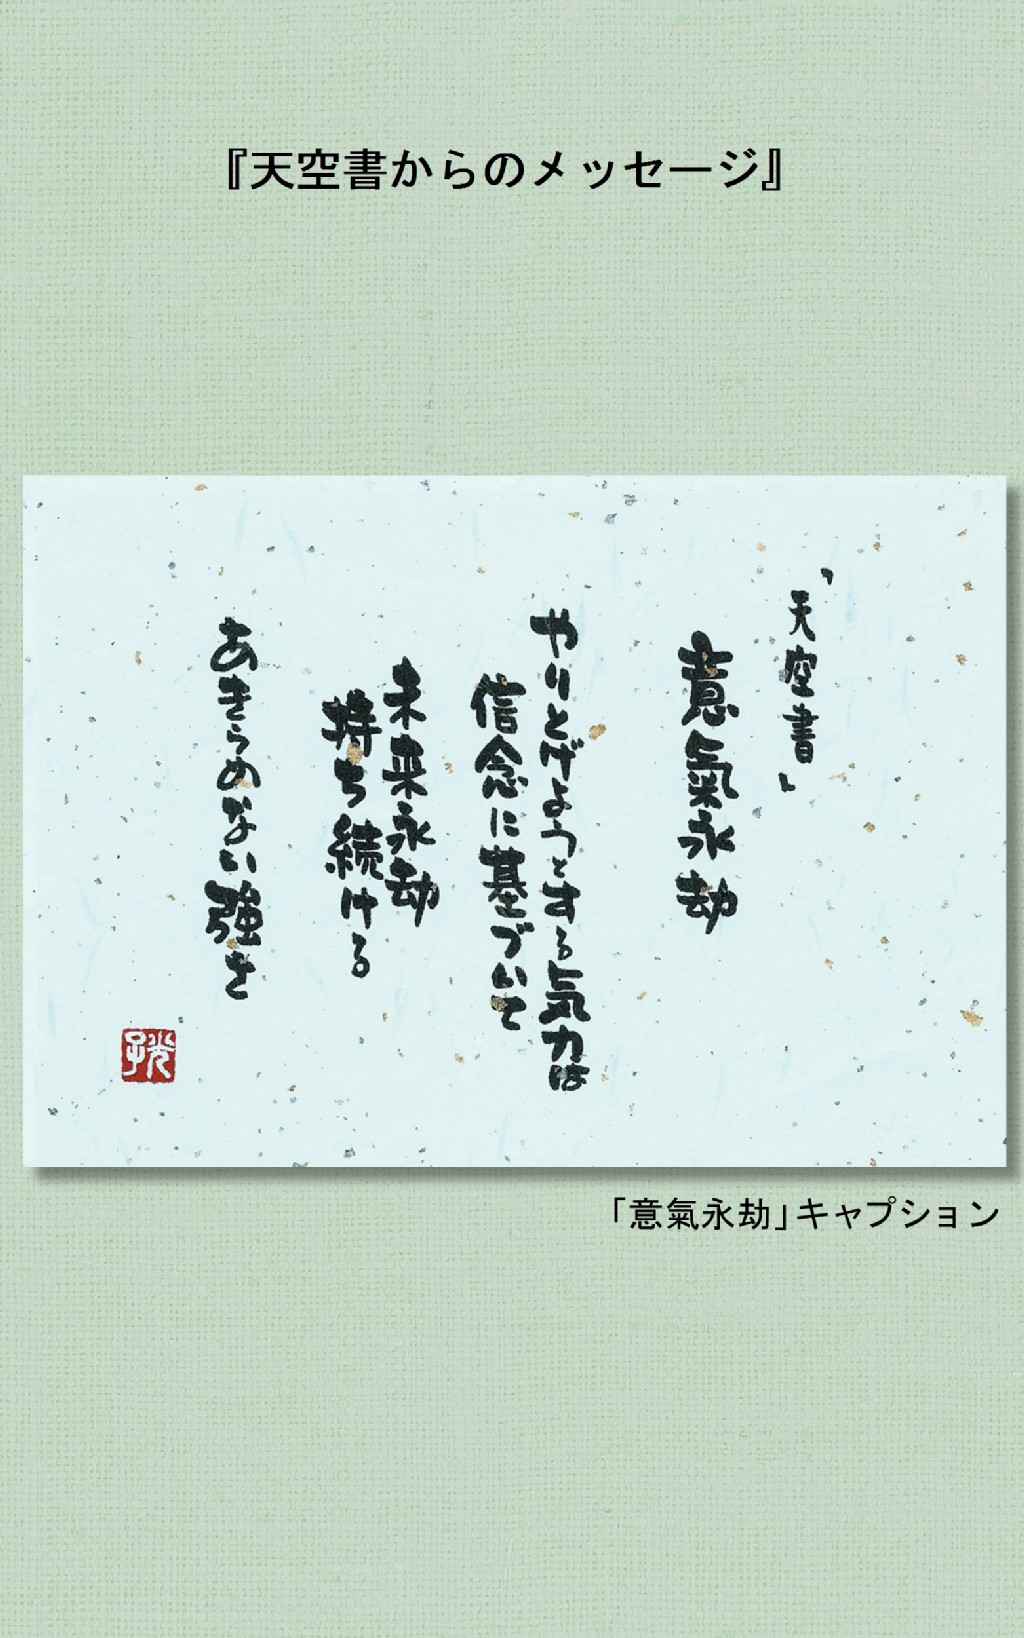 『天空書からのメッセージ』
「天空書」
意氣永劫
やりとげようとする気力は
信念に基づいて
未来永劫
持ち続ける
あきらめない強さ
「意氣永劫」キャプション